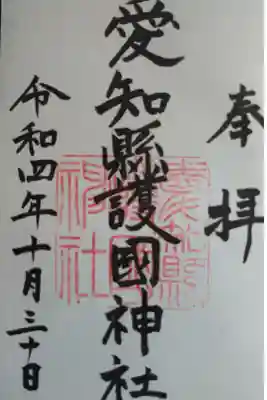 奉拝
愛知縣護國神社
令和四年十月三十日